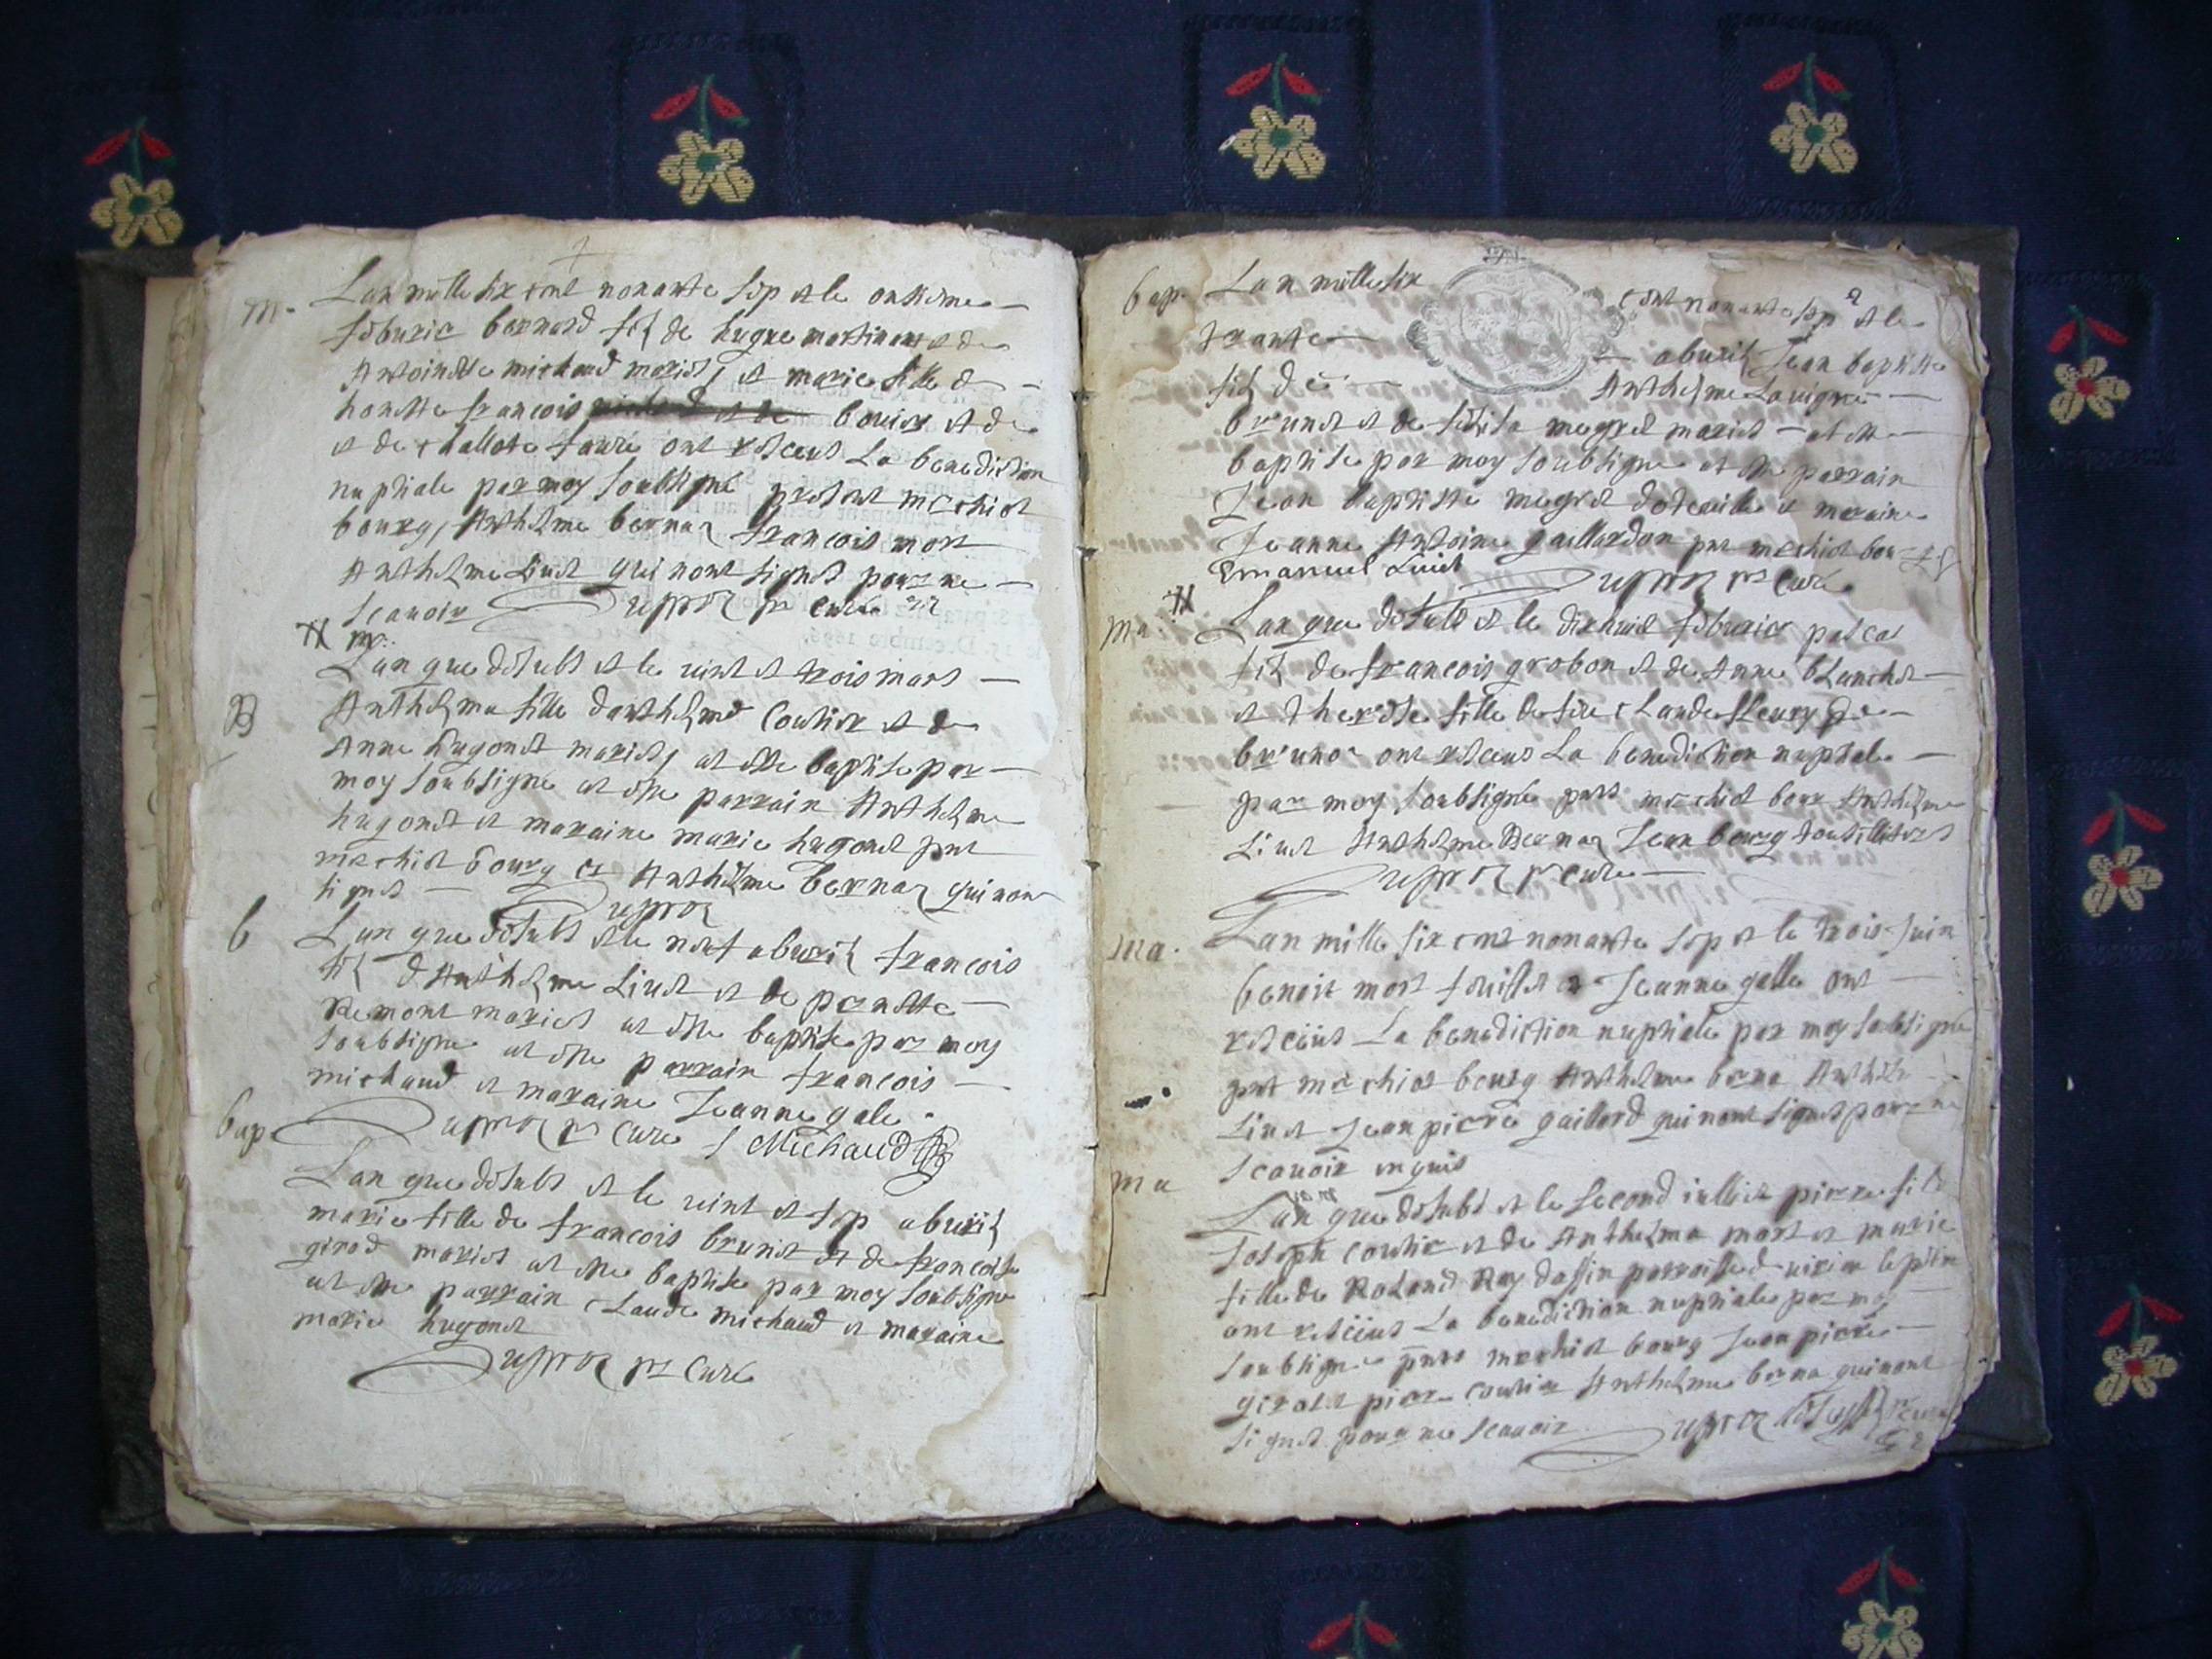 m. Lan mille six cent nonante sep et le onzieme
feburier bernard fil de hugue martinan et de
Antoinette michaud mariés et marie fille de
honeste francois bovier et de
et de challote faure ont receus la benediction
nuptiale par moy soubsigné present michiel
bourg, Anthelme bernar francois mort
Anthelme Livet qui nont signes pour ne
scavoir Dupror ptr Curé
m.
Lan que desubs et le vint et trois mars
B Anthelma fille danthelme Coutier et de
Anne hugonet mariés at este baptise par
moy soubsigne at este parrain Anthelme
hugonet et maraine marie hugonet pnt
michiel bourg et Anthelme bernar qui non
signes Dupror
b Lan que desubs et le neuf aburil francois
fil dAnthelme Livet et de pernette
Remont mariés at este baptise par moy
soubsigne at este parrain francois
michaud et maraine Jeanne gale.
Dupror ptr Curé f Michaud
bap
Lan que desubs et le vint et sep aburil
marie fille de francois brunet et de francoise
girod mariés at este baptise par moy soubsigne
at este parrain Claude michaud et maraine
marie hugonet
Dupror ptr Curé
2
bap. Lan mille six cent nonante sep et le
trante aburil Jean baptiste
fil de Anthelme Lavigne
brunet et de megret mariés at este
baptise par moy soubsigne at este parrain
Jean baptiste megret et maraine
Jeanne Antoine gaillardon pnt michiel bourg
Emanuel Livet Dupror ptr Curé
ma Lan que desubs et le dixhuit feburier pascal
fil de francois grobon et de Anne blanchet
et therese fille de feu Claude fleury de
bruno ont receus La benediction nuptiale
par moy soubsigné pnts michiel bour Anthelme
Livet Anthelme Bernar Jean bourg tous illiteres
Dupror ptr Curé
ma. Lan mille six cent nonante sep et le trois Juin
benoit mort et Jeanne galle ont
receius La benediction nuptiale par moy soubsigne
pnt michiel bourg Anthelme berna Anthelme
Livet Jean pierre gaillard qui nont signes pour ne
scavoir enquis
ma Lan que desubs et le second iulliet pierre fil de
Joseph coutier et de Anthelma mort et marie
fille de Roland Ray parroisse de virieu le petit
ont receius La benediction nuptiale par moy
soubsigne pnts michiel bourg Jean pierre
girolet pierre coutier Anthelme berna qui nont
signes pour ne scavoir Dupror ptr curé